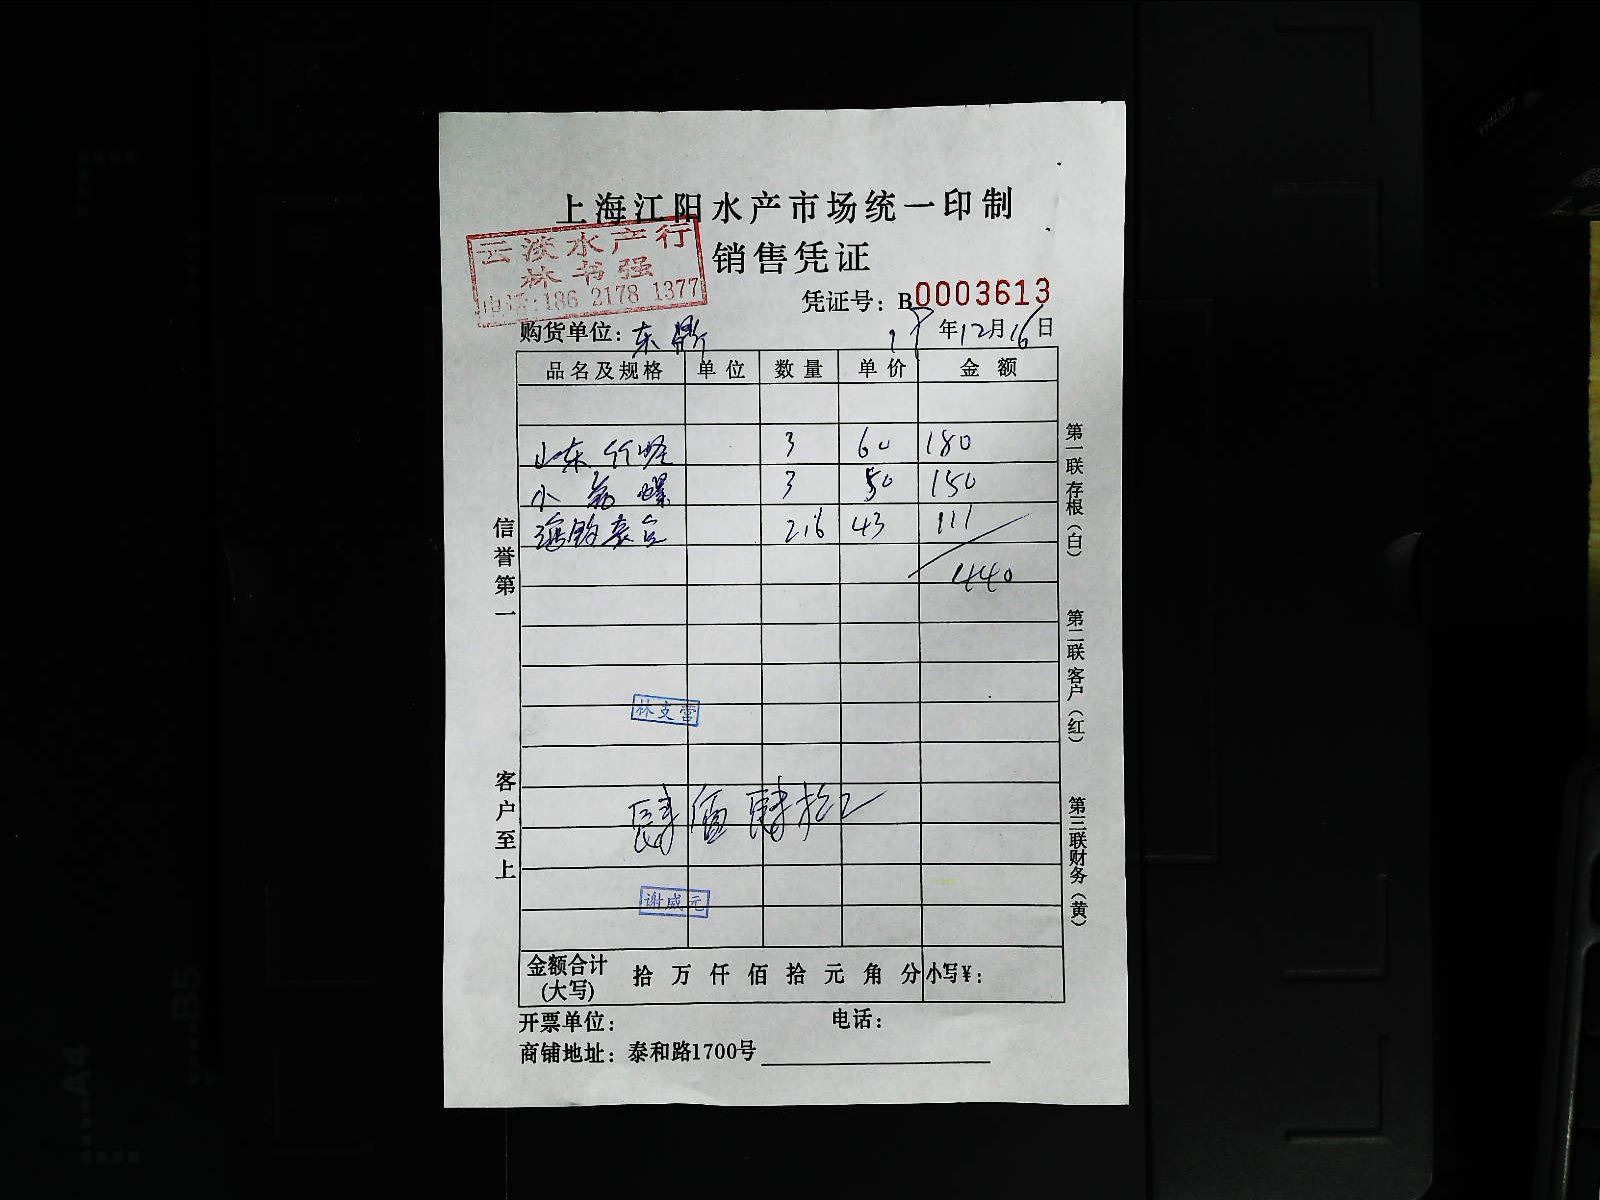 上海江阳水产市场统一印制
云淡水产行
林书强
电话:186 2178 1377
销售凭证
凭证号: B0003613
购货单位: 东鼎 年12月16日
品名及规格 单位 数量 单价 金额
山东竹蛏 3 60 180
小 螺 3 50 150
2.6 43 111
440
林支营
肆佰肆拾
谢咸元
金额合计(大写) 拾 万 仟 佰 拾 元 角 分 小写¥:
开票单位: 电话:
商铺地址: 泰和路1700号
信誉第一
客户至上
第一联 存根(白)
第二联 客户(红)
第三联 财务(黄)
A4
B5